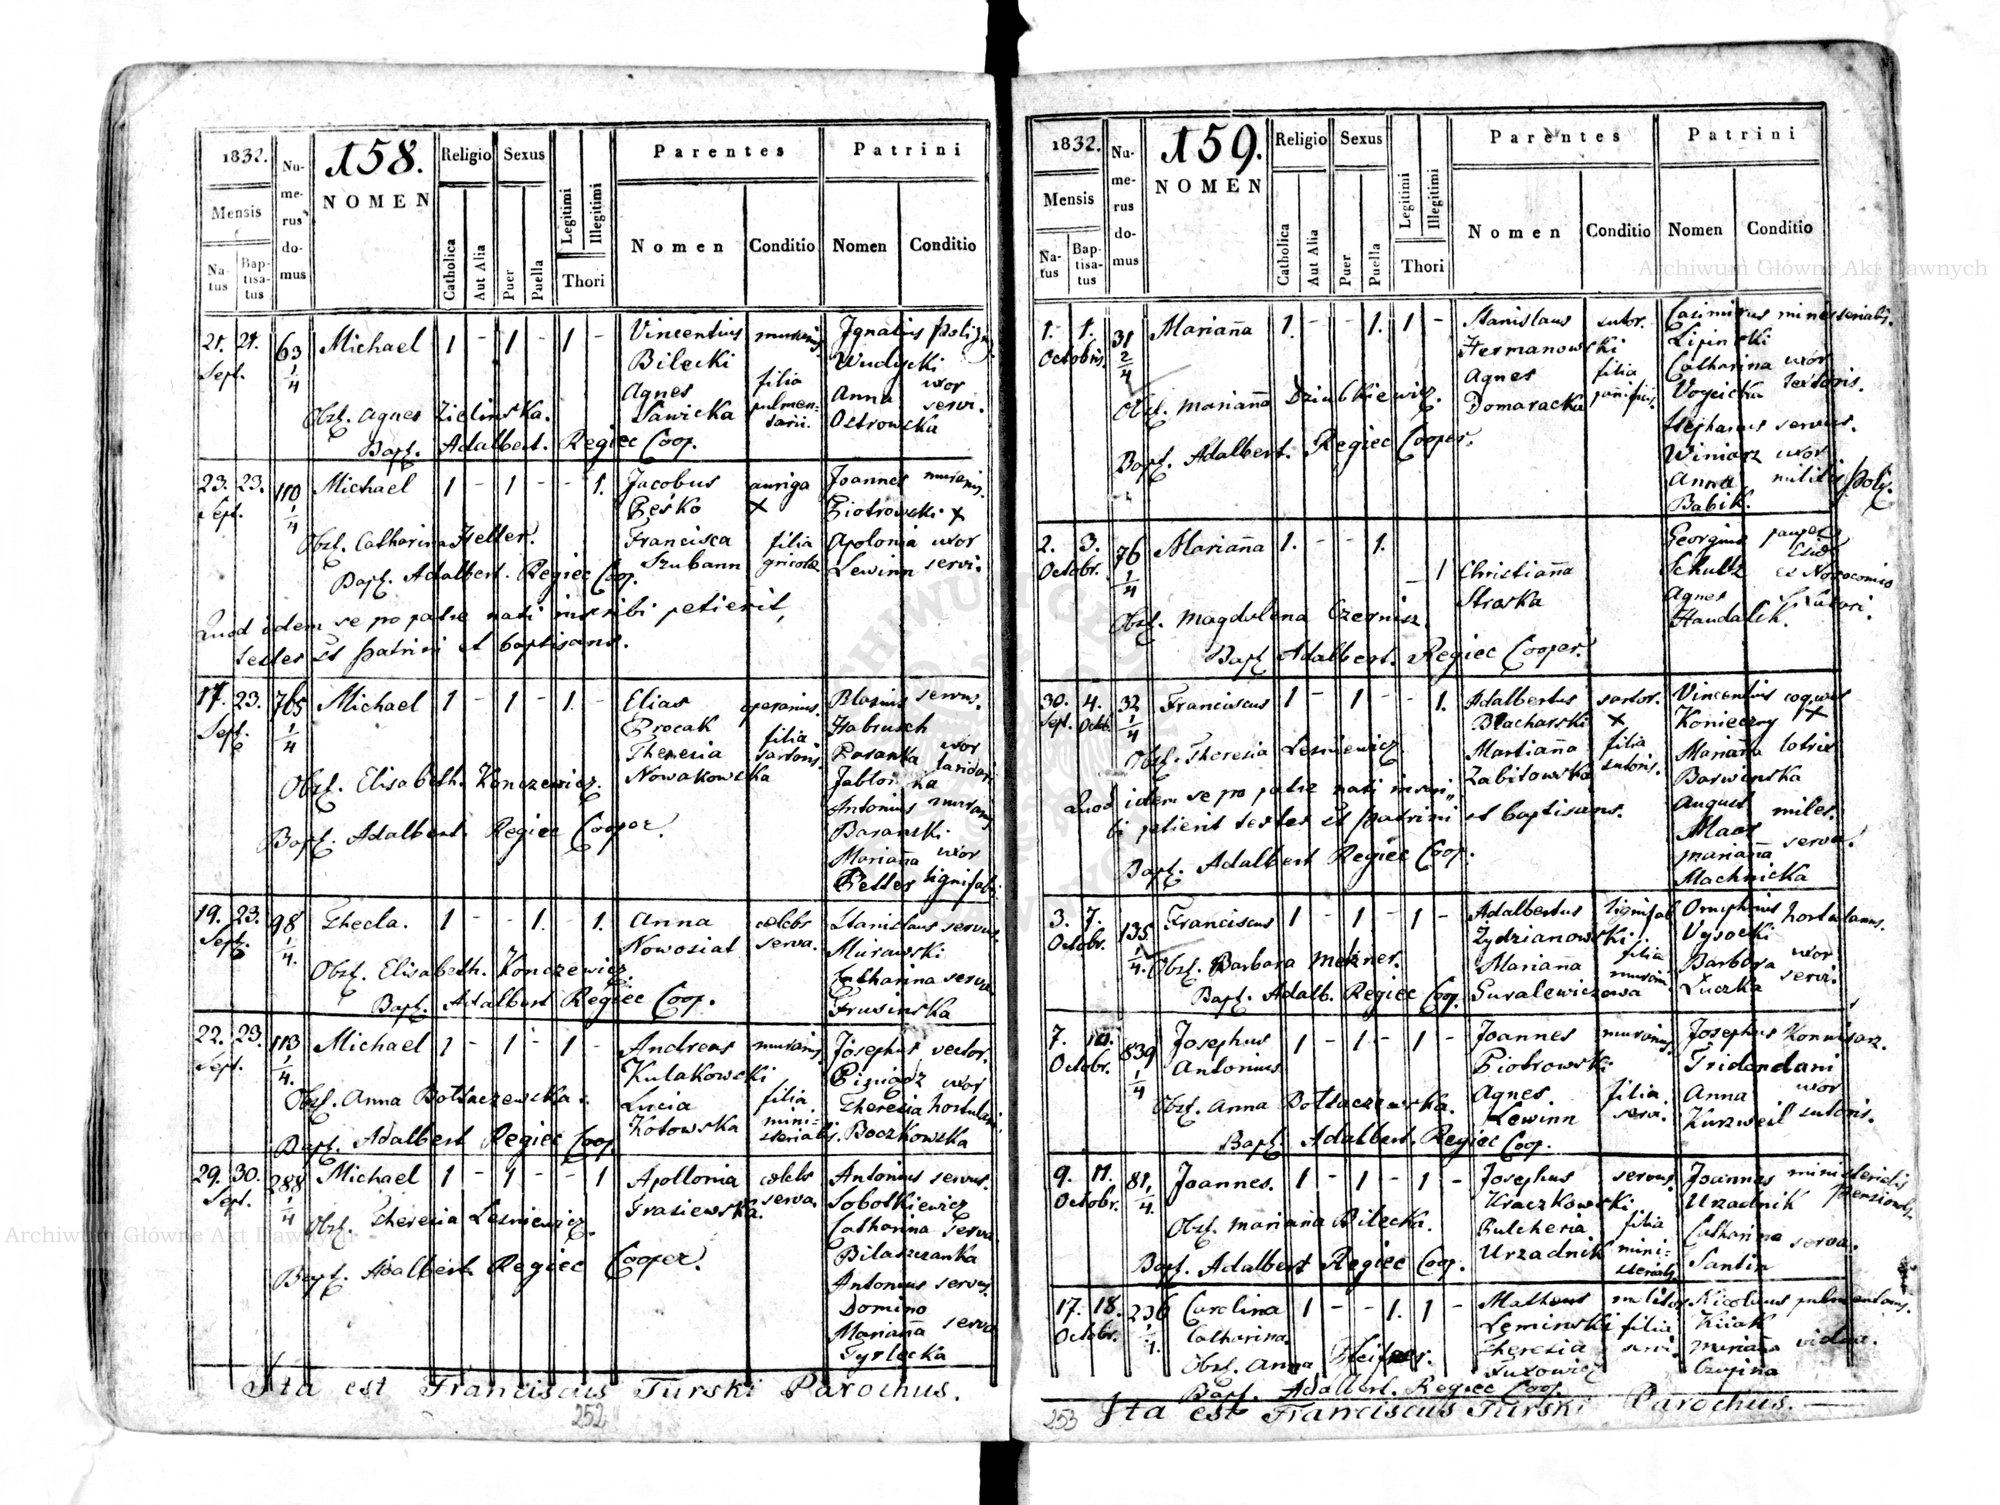 1832.
158.
Numerus domus
NOMEN
Religio
Sexus
Legitimi
Illegitimi
Thori
Parentes
Patrini
Mensis
Natus
Baptisatus
Catholica
Aut Alia
Puer
Puella
Nomen
Conditio
Nomen
Conditio
21. 21. 63 Michael 1 - 1 - 1 - Vincentius murarius Ignatius
Sept. 1/4 Bilecki Wudycki
Agnes filia Anna uxor
Obst. Agnes Zielinska. Sawicka pulmen= Ostrowska servi.
tarii.
Bapt. Adalbert. Regiec Coop.
23. 23. 110 Michael 1 - 1 - - 1. Jacobus auriga Joannes murarius.
Sept. 1/4 Peśko x Piotrowski x
Obst. Catharina Heller. Francisca filia Apolonia uxor
Bapt. Adalbert. Regiec Coop. Lewinn servi.
Quod idem se pro patre nati inscribi petierit,
testes st patrini et baptisans.
17. 23. 765 Michael 1 - 1 - 1. - Elias operarius. Blasius servus.
Sept. 1/4 Procak filia Habrusch
Theresia sartoris. uxor
Nowakowska
Obst. Elisabeth. Konczewicz. Antonius
Bapt. Adalbert. Regiec Cooper. Baranski.
Marianna uxor
Peller lignifabri.
19. 23. 98 Thecla. 1 - - 1. - 1. Anna celebs Stanislaus servus.
Sept. 1/4. Nowosiat serva. Murawski
Obst. Elisabeth. Konczewicz. Catharina serva.
Bapt. Adalbert Regiec Coop. Frusinska
22. 23. 113 Michael 1 - 1 - 1 - Andreas murarius Josephus vector.
Sept. 1/4. Kulakowski Pieniądz uxor
Obst. Anna Boltaczewska. Lucia filia Theresia hortulani.
Kotowska mini= Boczkowska
sterialis.
Bapt. Adalbert Regiec Coop.
29. 30. 288 Michael 1 - 1 - - 1 Apollonia celebs Antonius servus.
Sept. 1/4 Frasiewska. serva. Sobotkiewicz
Obst. Theresia Lesniewicz. Catharina serva.
Bilaszczanka
Bapt. Adalbert. Regiec Cooper. Antonius servus.
Domino
Marianna serva
Tyrlecka
Ita est Franciscus Turski Parochus.
252
1832.
159.
Numerus domus
NOMEN
Religio
Sexus
Legitimi
Illegitimi
Thori
Parentes
Patrini
Mensis
Natus
Baptisatus
Catholica
Aut Alia
Puer
Puella
Nomen
Conditio
Nomen
Conditio
1. 1. 31 Marianna 1. - - 1. 1 - Stanislaus sutor. Casimirus ministerialis.
Octobris. 2/4 Hermanowski Lipinski
Agnes filia Catharina uxor
Obst. Marianna Dziubkiewicz. Domaracka Voycicka textoris.
Stephanus servus.
Bapt. Adalbert. Regiec Cooper. Winiarz uxor
Anna militis
Babik.
2. 3. 76 Marianna 1. - - 1. Georgius
Octobr. 1/4 - 1 Christianna Schultz
Straska Agnes
Obst. Magdalena Czernisz. Handalik.
Bapt Adalbert. Regiec Cooper.
30. 4. 32 Franciscus 1 - 1 - 1. Adalbertus sartor. Vincentius coquus
Sept. Octob. 1/4 Blacharski x Konieczny x
Obst. Theresia Lesniewicz. Marianna filia Marianna lotrix
Zabitowska sutoris. Barwinska
Quod idem se pro patre nati inscri= August miles.
bi petierit testes st patrini et baptisans. Maas
Marianna serva.
Bapt. Adalbert Regiec Coop. Machnicka
3. 7. 135 Franciscus 1 - 1 - 1 - Adalbertus lignifab Onuphrius hortulanus.
Octobr. 1/4. Zydzianowski. Wysocki
Obst. Barbara Mekner. Marianna filia Barbara uxor
Bapt. Adalb. Regiec Coop. Guralewiczowa Luczka servi.
7. 10. 839 Josephus 1 - 1 - 1 - Joannes murarius Josephus Kommisarz.
Octobr. 1/4 Antonius Piotrowski Tridondani
Agnes filia Anna uxor
Obst. Anna Boltaczewska. Lewinn servi. Kurzweil sutoris.
Bapt. Adalbert. Regiec Coop.
9. 11. 81. Joannes. 1 - 1 - 1 - Josephus servus. Joannes ministerialis
Octobr. 1/4. Kraczkowski Urzadnik
Obst. Marianna Bilecka. Pulcheria filia Catharina serva.
Urzadnik mini= Santin
sterialis
Bapt. Adalbert Regiec Coop.
17. 18. 236 Carolina 1 - - 1. 1 - Matheus Nicolaus
Octobr. 1/4. Catharina. Leminski filia
Theresia servi. Marianna vidua.
Obst. Anna Czupina
Bapt. Adalbert. Regiec Coop.
Ita est Franciscus Turski Parochus.
253
Archiwum Główne Akt Dawnych
Archiwum Główne Akt Dawnych